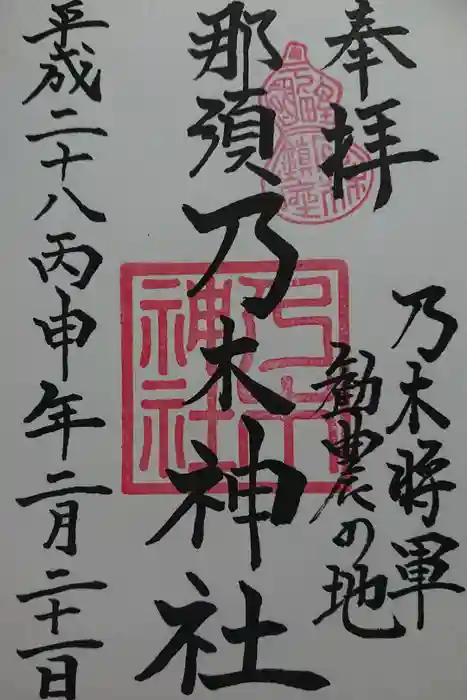 奉拝
乃木将軍
勧農の地
那須乃木神社
乃木神社
平成二十八丙申年二月二十一日